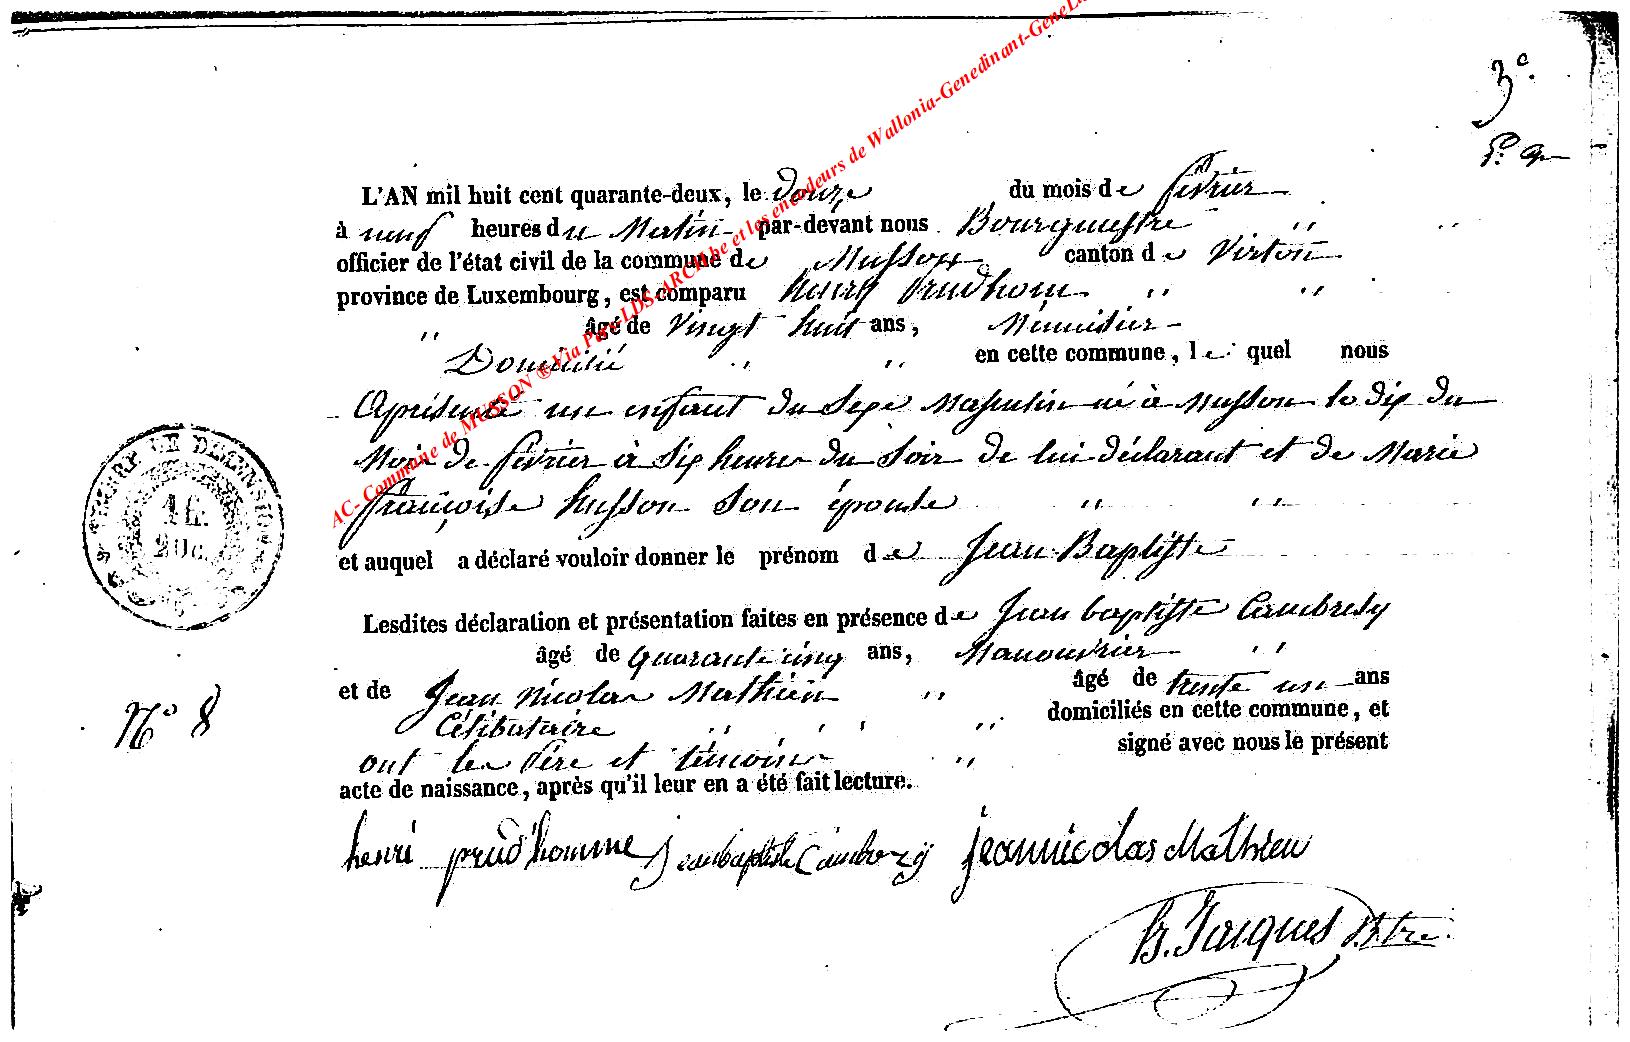 3e.
AC- Commune de MUSSON ® Via Pay-LDS-ARCH.be et les encodeurs de Wallonia-Genedinant-GeneLux
L'AN mil huit cent quarante-deux, le douze du mois de février
à neuf heures du Matin par-devant nous Bourgmestre " "
officier de l'état civil de la commune de Musson canton de Virton
province de Luxembourg, est comparu henry Prudhom " "
" âgé de Vingt huit ans, Ménuisier
Domicilié " " en cette commune, le quel nous
A présenté un enfant du Sexe Masculin né à Musson le dix du
Mois de février à Six heures du Soir de lui déclarant et de Marie
françoise husson Son épouse " "
et auquel a déclaré vouloir donner le prénom de Jean Baptiste
Lesdites déclaration et présentation faites en présence de Jean baptiste Cambresy
âgé de Quarante cinq ans, Manouvrier " "
et de Jean Nicolas Mathieu " âgé de trente un ans
Célibataire " " " domiciliés en cette commune, et
ont les Père et témoins " signé avec nous le présent
acte de naissance, après qu'il leur en a été fait lecture.
No 8
henri prud'homme Jean baptiste Cambresÿ jeannicolas Mathieu
B. Jacques Btre.